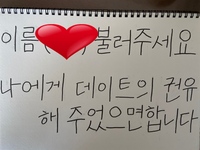 이름( 불러주세요
나에게 데이트의 권유
해 주었으면합니다